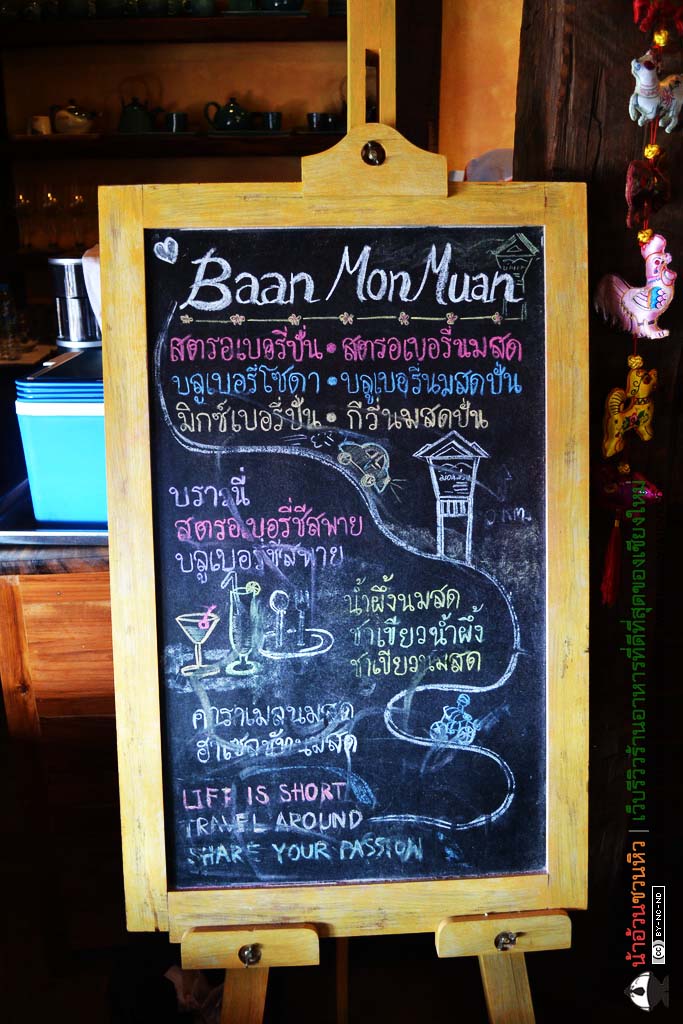 Baan Mon Muan
สตรอเบอรี่ปั่น • สตรอเบอรี่นมสด
บลูเบอรี่โซดา • บลูเบอรี่นมสดปั่น
มิกซ์เบอรี่ปั่น • กีวี่นมสดปั่น
บราวนี่
สตรอเบอรี่ชีสพาย
บลูเบอรี่ชีสพาย
น้ำผึ้งนมสด
ชาเขียวน้ำผึ้ง
ชาเขียวนมสด
คาราเมลนมสด
ฮาเซลนัทนมสด
LIFE IS SHORT
TRAVEL AROUND
SHARE YOUR PASSION
น้าอ้วนชวนหิว | เว็บรีวิวร้านอาหารที่ดีที่สุดของเชียงใหม่
cc BY-NC-ND